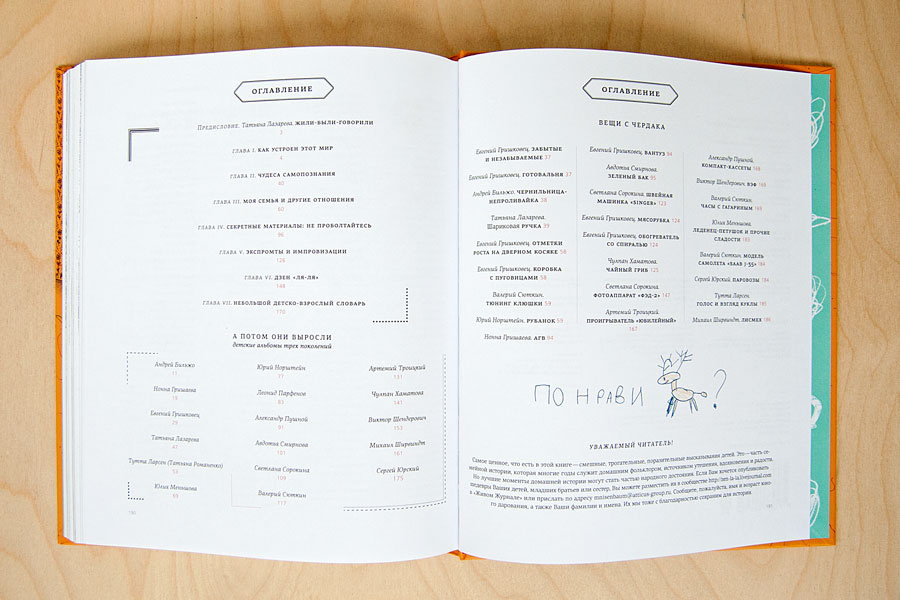 ОГЛАВЛЕНИЕ
Предисловие. Татьяна Лазарева. ЖИЛИ-БЫЛИ-ГОВОРИЛИ
2
ГЛАВА I. КАК УСТРОЕН ЭТОТ МИР
4
ГЛАВА II. ЧУДЕСА САМОПОЗНАНИЯ
40
ГЛАВА III. МОЯ СЕМЬЯ И ДРУГИЕ ОТНОШЕНИЯ
60
ГЛАВА IV. СЕКРЕТНЫЕ МАТЕРИАЛЫ: НЕ ПРОБОЛТАЙТЕСЬ
96
ГЛАВА V. ЭКСПРОМТЫ И ИМПРОВИЗАЦИИ
126
ГЛАВА VI. ДЗЕН «ЛЯ-ЛЯ»
148
ГЛАВА VII. НЕБОЛЬШОЙ ДЕТСКО-ВЗРОСЛЫЙ СЛОВАРЬ
170
А ПОТОМ ОНИ ВЫРОСЛИ
детские альбомы трех поколений
Андрей Бильжо
11
Нонна Гришаева
19
Евгений Гришковец
29
Татьяна Лазарева
47
Тутта Ларсен (Татьяна Романенко)
53
Юлия Меньшова
69
Юрий Норштейн
77
Леонид Парфенов
83
Александр Пушной
91
Авдотья Смирнова
101
Светлана Сорокина
109
Валерий Сюткин
117
Артемий Троицкий
131
Чулпан Хаматова
141
Виктор Шендерович
153
Михаил Ширвиндт
161
Сергей Юрский
175
180
ОГЛАВЛЕНИЕ
ВЕЩИ С ЧЕРДАКА
Евгений Гришковец. ЗАБЫТЫЕ
И НЕЗАБЫВАЕМЫЕ 37
Евгений Гришковец. ГОТОВАЛЬНЯ 37
Андрей Бильжо. ЧЕРНИЛЬНИЦА-
НЕПРОЛИВАЙКА 38
Татьяна Лазарева.
ШАРИКОВАЯ РУЧКА 39
Евгений Гришковец. ОТМЕТКИ
РОСТА НА ДВЕРНОМ КОСЯКЕ 58
Евгений Гришковец. КОРОБКА
С ПУГОВИЦАМИ 58
Валерий Сюткин.
ТЮНИНГ КЛЮШКИ 59
Юрий Норштейн. РУБАНОК 59
Нонна Гришаева. АГВ 94
Евгений Гришковец. ВАНТУЗ 94
Авдотья Смирнова.
ЗЕЛЕНЫЙ БАК 95
Светлана Сорокина. ШВЕЙНАЯ
МАШИНКА «SINGER» 123
Евгений Гришковец. МЯСОРУБКА 124
Евгений Гришковец. ОБОГРЕВАТЕЛЬ
СО СПИРАЛЬЮ 124
Чулпан Хаматова.
ЧАЙНЫЙ ГРИБ 125
Светлана Сорокина.
ФОТОАППАРАТ «ФЭД-2» 147
Артемий Троицкий.
ПРОИГРЫВАТЕЛЬ «ЮБИЛЕЙНЫЙ»
167
Александр Пушной.
КОМПАКТ-КАССЕТЫ 168
Виктор Шендерович. ВЭФ 168
Валерий Сюткин.
ЧАСЫ С ГАГАРИНЫМ 169
Юлия Меньшова.
ЛЕДЕНЕЦ-ПЕТУШОК И ПРОЧИЕ
СЛАДОСТИ 183
Валерий Сюткин. МОДЕЛЬ
САМОЛЕТА «SAAB J-35» 184
Сергей Юрский. ПАРОВОЗЫ 184
Тутта Ларсен.
ГОЛОС И ВЗГЛЯД КУКЛЫ 185
Михаил Ширвиндт.
ПОНРАВИ ?
УВАЖАЕМЫЙ ЧИТАТЕЛЬ!
Самое ценное, что есть в этой книге — смешные, трогательные, поразительные высказывания детей. Это — часть се-
мейной истории, которая многие годы служит домашним фольклором, источником утешения, вдохновения и радости.
Но лучшие моменты домашней истории могут стать частью народного достояния. Если Вам хочется опубликовать
шедевры Ваших детей, младших братьев или сестер, Вы можете разместить их в сообществе http://zen-la-la.livejournal.com
в «Живом Журнале» или прислать по адресу mnisenbaum@atticus-group.ru. Сообщите, пожалуйста, имя и возраст юно-
го дарования, а также Ваши фамилии и имена. Их мы тоже с благодарностью сохраним для истории.